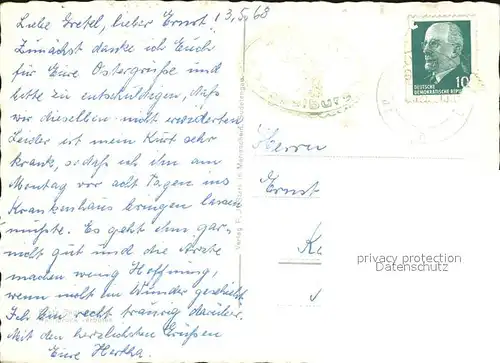 Liebe Gretel, lieber Ernst! 13.5.68
Zunächst danke ich Euch
für Eure Ostergrüße und
bitte zu entschuldigen, daß
wir dieselben nicht erwiderten
Leider ist mein Kurt sehr
krank, sodaß ich ihn am
Montag vor acht Tagen ins
Krankenhaus bringen lassen
mußte. Es geht ihm gar-
nicht gut und die Ärzte
machen wenig Hoffnung,
wenn nicht ein Wunder geschieht
Ich bin recht traurig darüber.
Mit den herzlichsten Grüßen
Eure Hertha.
DEUTSCHE
DEMOKRATISCHE REPUBLIK
10
Herrn
Ernst
privacy protection
Datenschutz